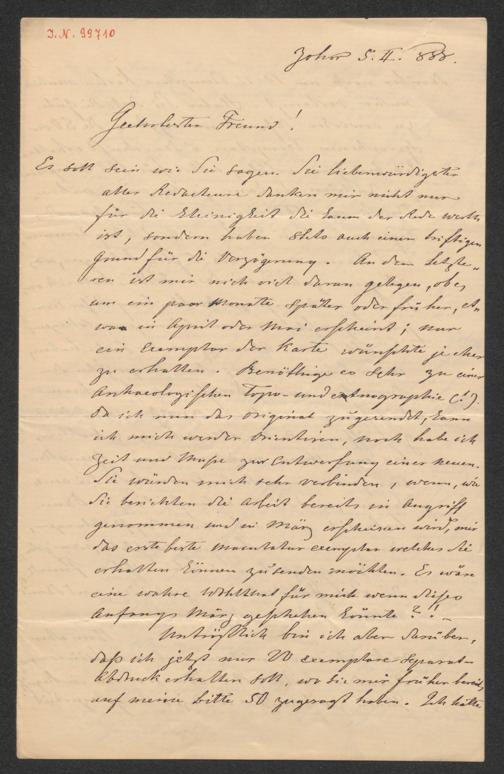 J.N. 99710
Johor 5. II. 888.
Geehrtester Freund!
Es soll sein wie Sie sagen. Sie liebenwürdigster
aller Redacteure danken mir nicht nur
für die Kleinigkeit die kaum der Rede werth
ist, sondern haben stets auch einen triftigen
Grund für die Verzögerung. An dem letzte-
ren ist mir nich viel daran gelegen, ob es
um ein paar Monate später oder früher, et-
was in April oder Mai erscheint; nur
ein Exemplar der Karte wünschte je eher
zu erhalten. Benöthige es sehr zu einer
Archaeologischen Topo- und Ethnographie (!).
Da ich nun das Original zugesendet, kann
ich mich weder orientiren, noch habe ich
Zeit und Musse zur Entwerfung einer neuen.
Sie würden mich sehr verbinden, wenn, wie
Sie berichten die Arbeit bereits in Angriff
genommen und in März erscheinen wird, mir
das erste beste Maculatur exemplar welches Sie
erhalten können zusenden möchten. Es wäre
eine wahre Wohlthat für mich wenn dieses
Anfangs März geschehen könnte?! –
Untröstlich bin ich aber darüber,
daß ich jetzt nur 20 exemplare Separat-
Abdruck erhalten soll, wo Sie mir früher bereits
auf meine Bitte 50 zugesagt haben. Ich hätte